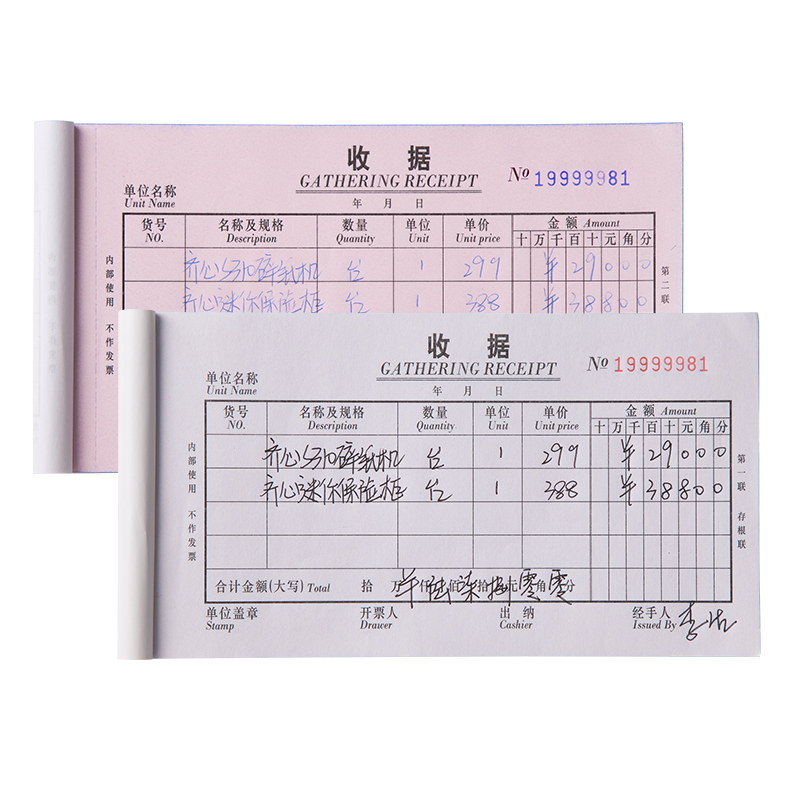 收 据
GATHERING RECEIPT
№ 19999981
单位名称
Unit Name
年 月 日
货号 名称及规格 数量 单位 单价 金 额 Amount
NO. Description Quantity Unit Unit price 十 万 千 百 十 元 角 分
齐心S310碎纸机 台 1 299 ¥ 2 9 0 0 0
齐心迷你保险柜 台 1 388 ¥ 3 8 8 0 0
内部使用 不作发票
第二联
收 据
GATHERING RECEIPT
№ 19999981
单位名称
Unit Name
年 月 日
货号 名称及规格 数量 单位 单价 金 额 Amount
NO. Description Quantity Unit Unit price 十 万 千 百 十 元 角 分
齐心S310碎纸机 台 1 299 ¥ 2 9 0 0 0
齐心迷你保险柜 台 1 388 ¥ 3 8 8 0 0
内部使用 不作发票
第一联 存根联
合计金额(大写) Total 拾 万 仟 佰 拾 元 角 分
¥ 陆 柒 捌 零 零
单位盖章 开票人 出 纳 经手人
Stamp Drawer Cashier Issued By